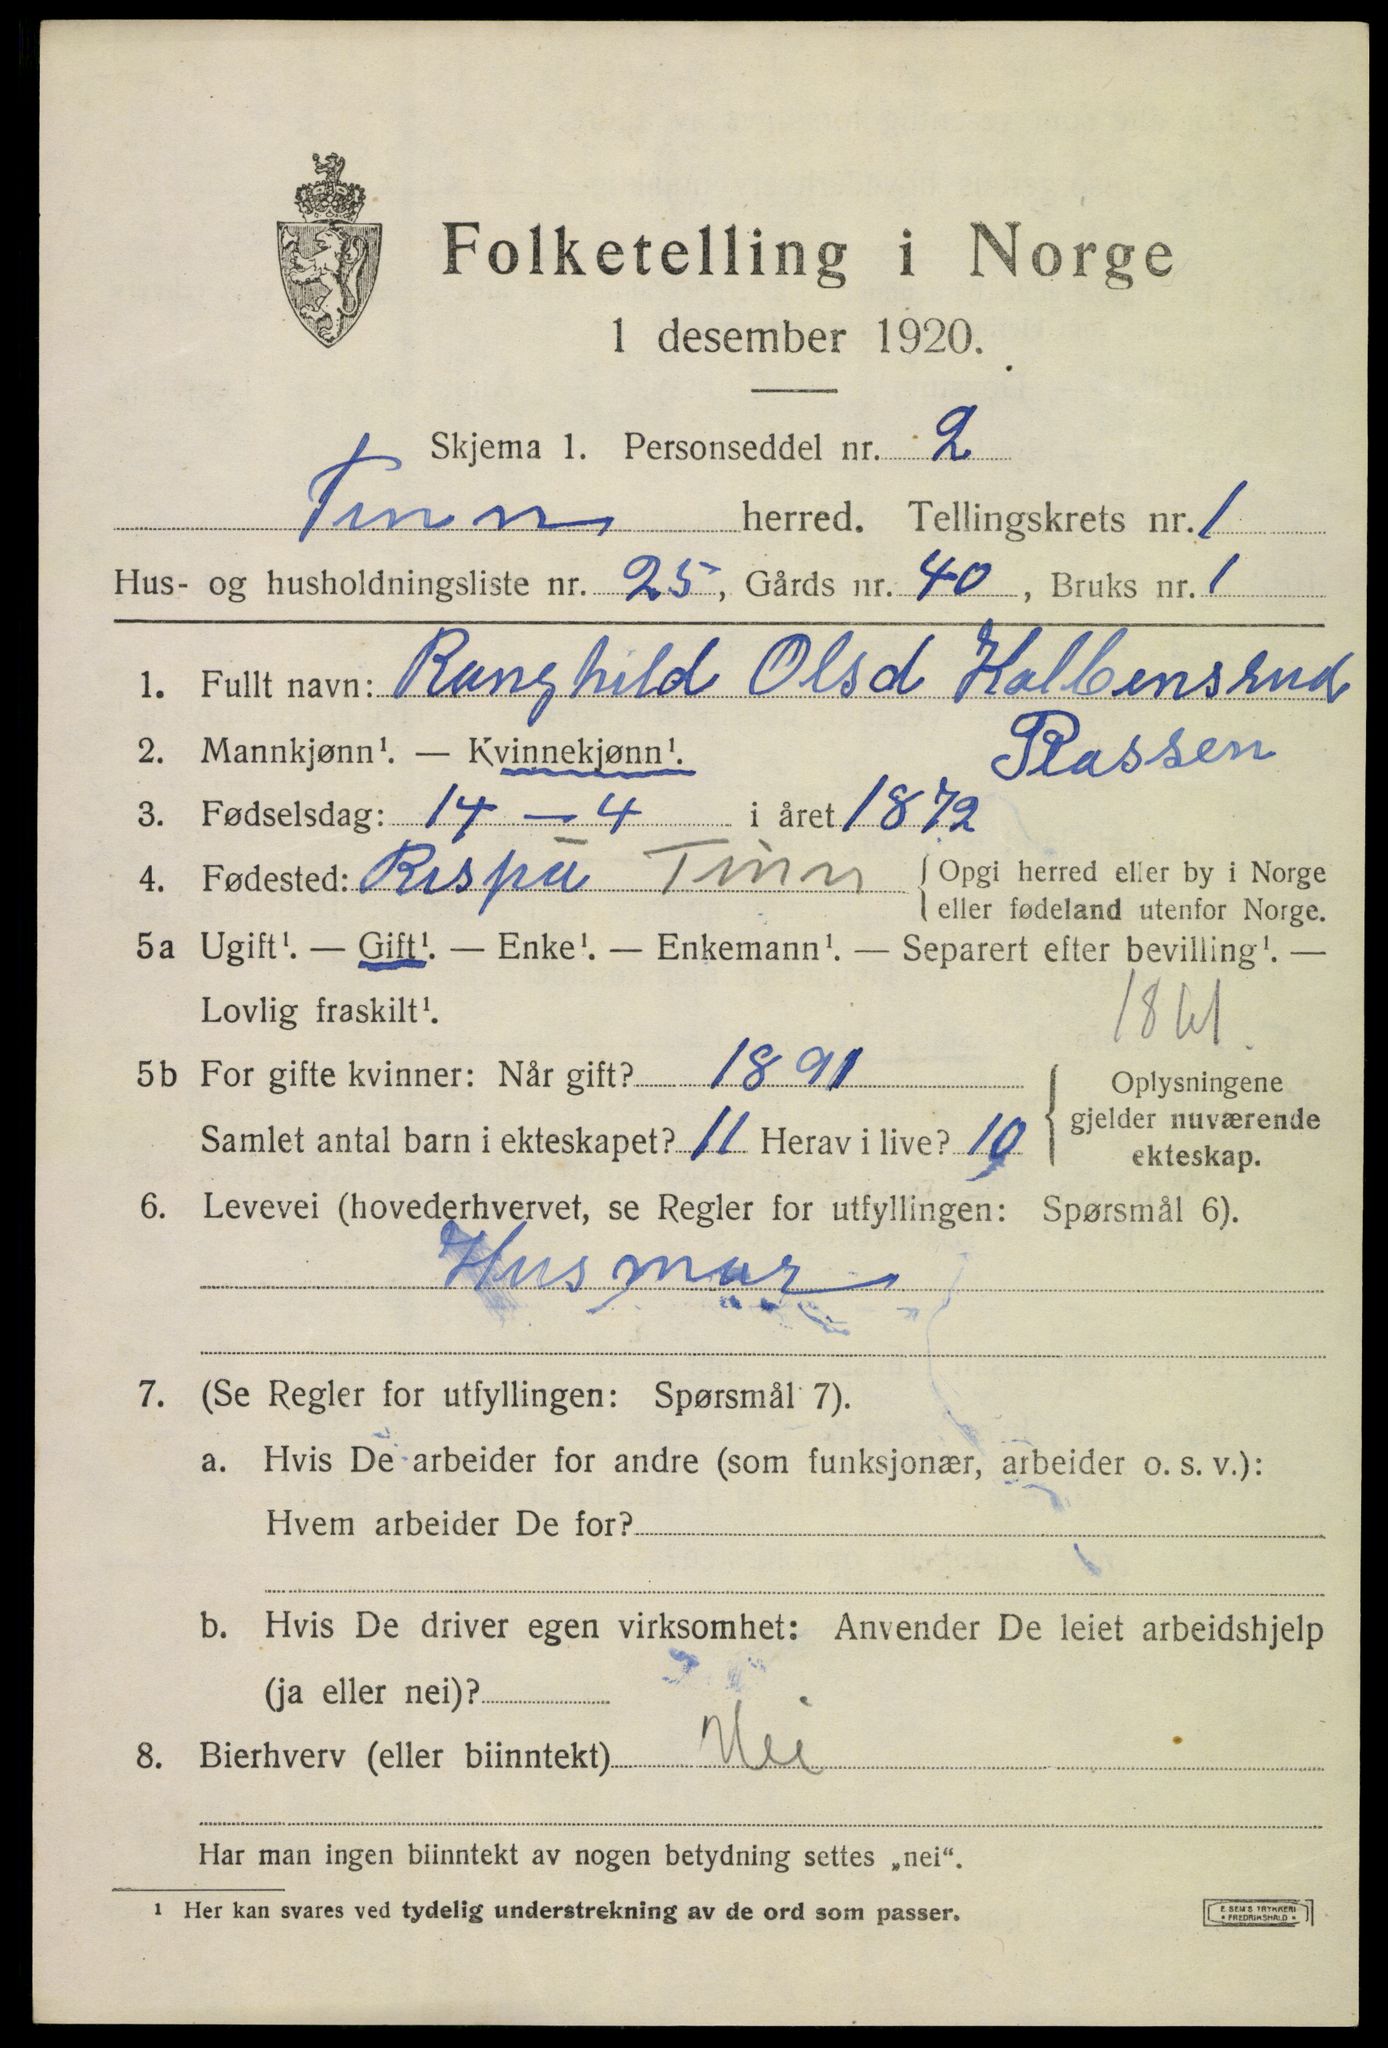 Folketelling i Norge
1 desember 1920.
Skjema 1. Personseddel nr. 2
Tinn herred. Tellingskrets nr. 1
Hus- og husholdningsliste nr. 25, Gårds nr. 40, Bruks nr. 1
1. Fullt navn: Ranghild Olsd Kalbensrud
Plassen
2. Mannkjønn¹. — Kvinnekjønn¹.
3. Fødselsdag: 14 — 4 i året 1872
4. Fødested: Tinn { Opgi herred eller by i Norge
eller fødeland utenfor Norge.
5a Ugift¹. — Gift¹. — Enke¹. — Enkemann¹. — Separert efter bevilling¹. —
Lovlig fraskilt¹.
5b For gifte kvinner: Når gift? 1891
Samlet antal barn i ekteskapet? 11 Herav i live? 10
{ Oplysningene
gjelder nuværende
ekteskap.
6. Levevei (hovederhvervet, se Regler for utfyllingen: Spørsmål 6).
Husmor
7. (Se Regler for utfyllingen: Spørsmål 7).
a. Hvis De arbeider for andre (som funksjonær, arbeider o. s. v.):
Hvem arbeider De for?
b. Hvis De driver egen virksomhet: Anvender De leiet arbeidshjelp
(ja eller nei)?
8. Bierhverv (eller biinntekt) Nei
Har man ingen biinntekt av nogen betydning settes „nei“.
¹ Her kan svares ved tydelig understrekning av de ord som passer.
E. SEM'S TRYKKERI
FREDRIKSHALD